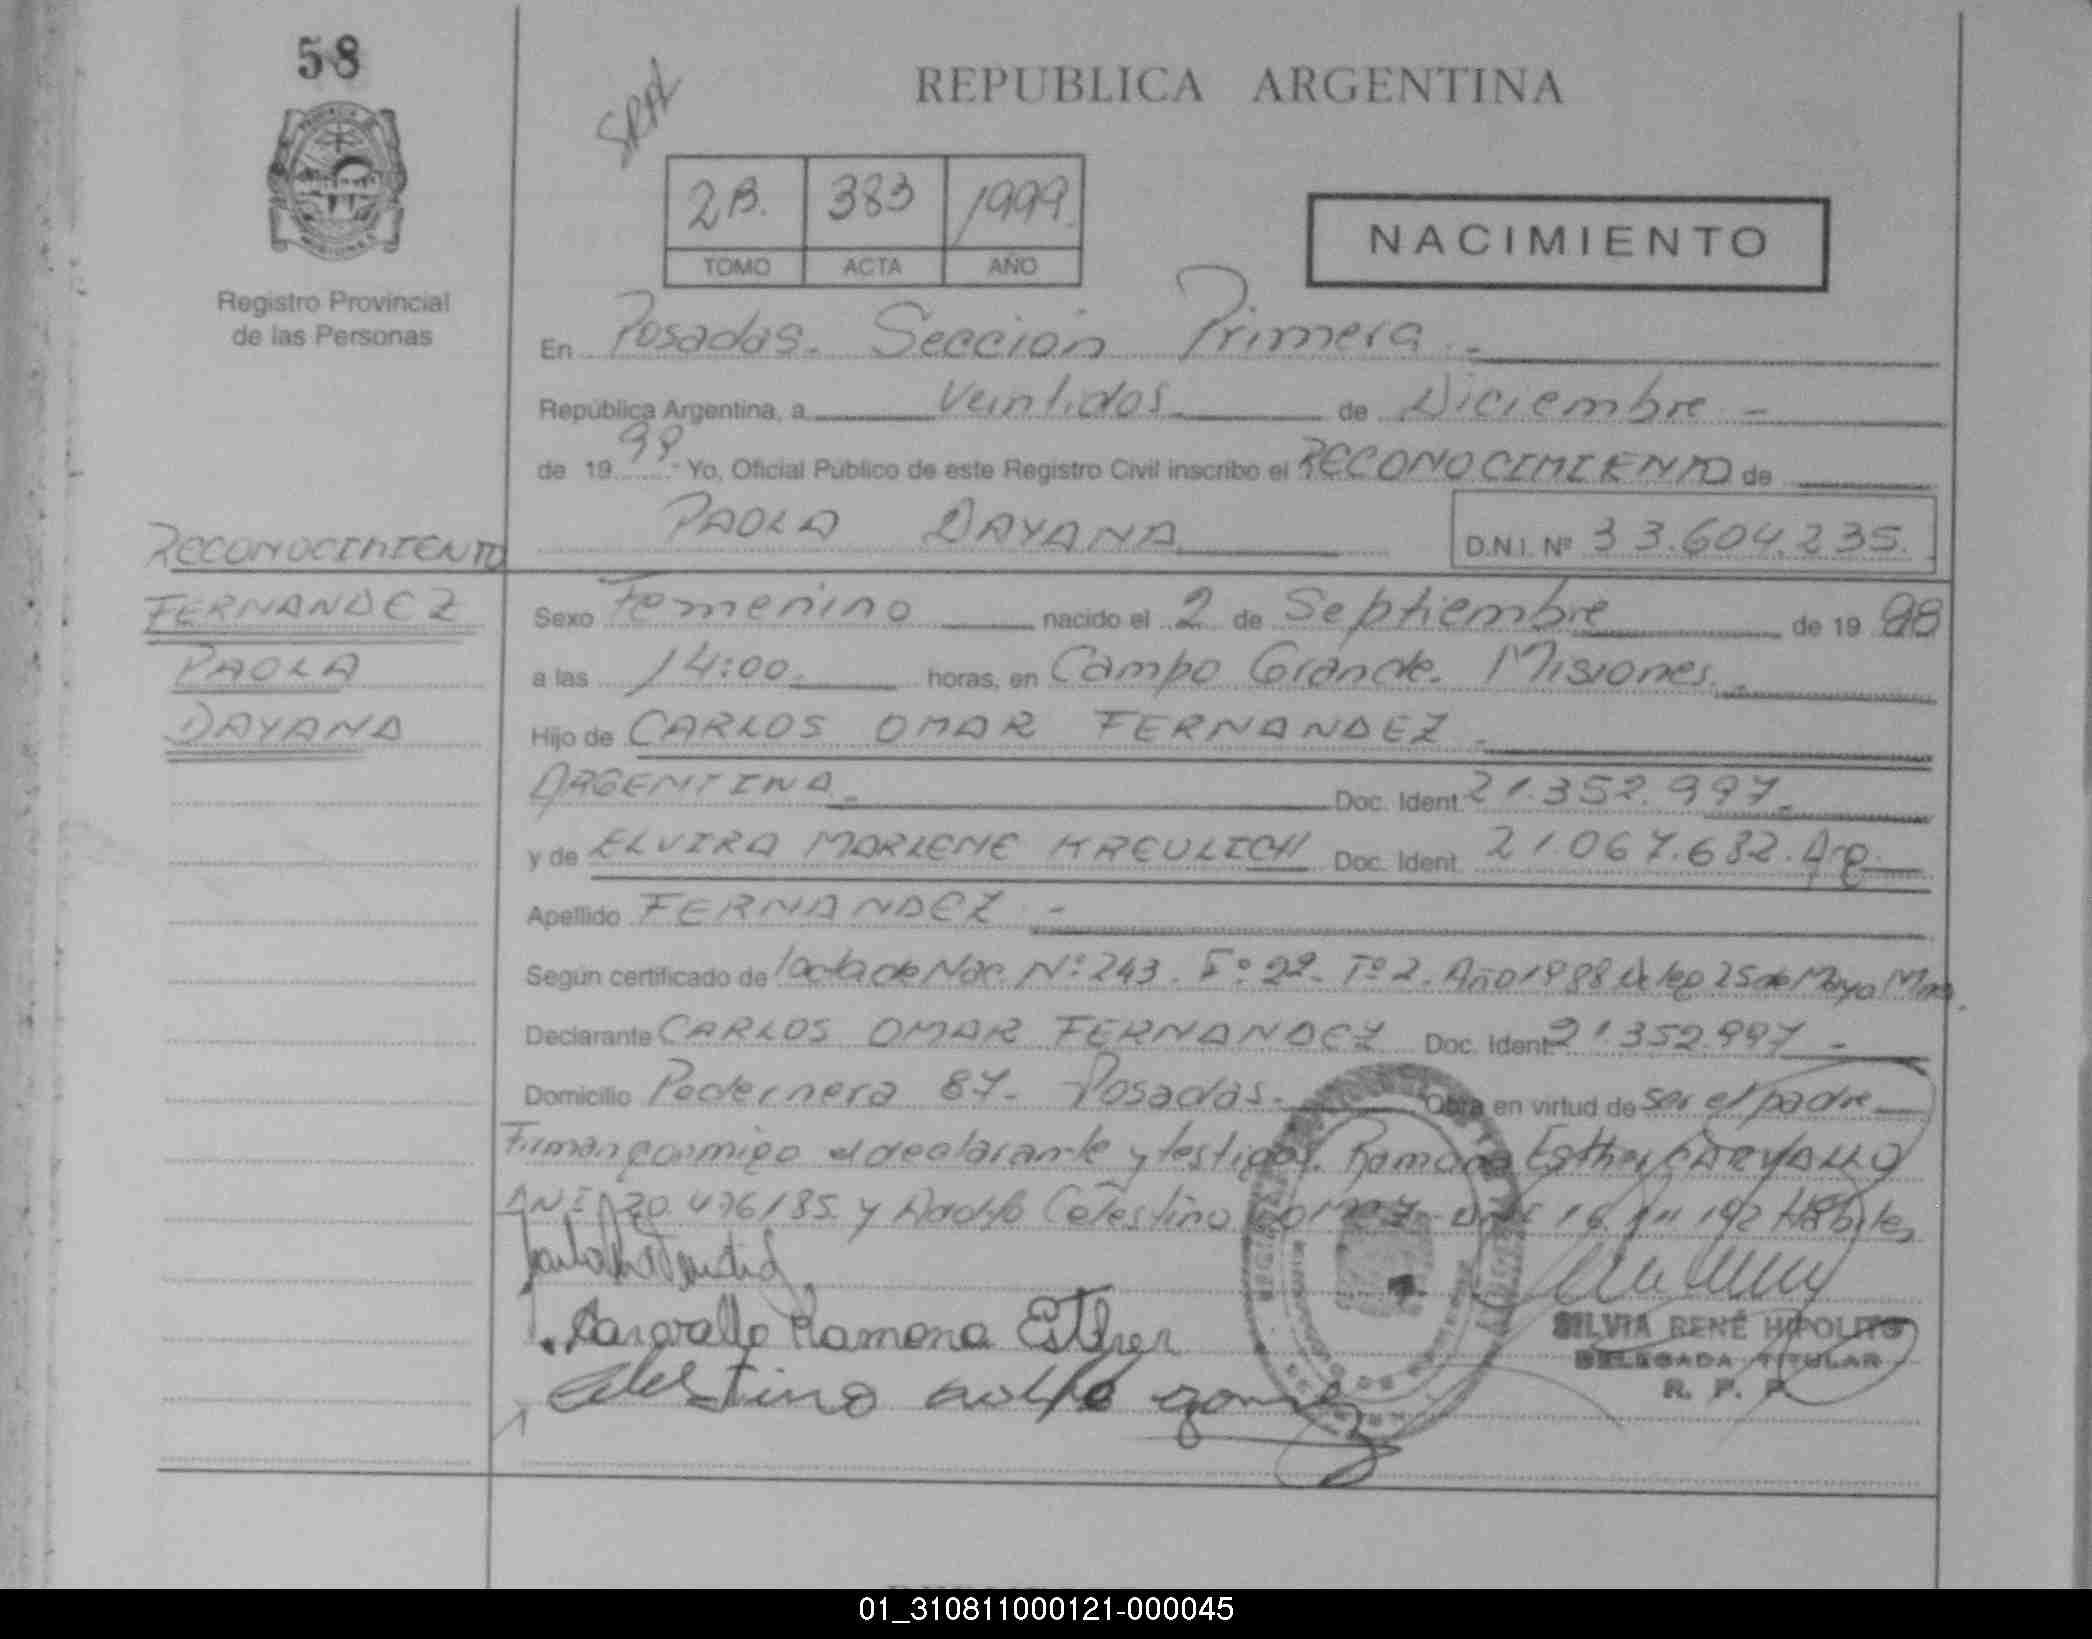 58
SRAL
REPUBLICA ARGENTINA
2B. 383 1999.
TOMO ACTA AÑO
NACIMIENTO
Registro Provincial
de las Personas
En Posadas. Sección Primera.-
República Argentina, a Veintidos de Diciembre -
de 1999 - Yo, Oficial Público de este Registro Civil inscribo el RECONOCIMIENTO de
PAOLA DAYANA D.N.I. Nº 33.604.235.
RECONOCIMIENTO
FERNANDEZ
PAOLA
DAYANA
Sexo Femenino nacido el 2 de Septiembre de 19 88
a las 14:00. horas, en Campo Grande. Misiones.-
Hijo de CARLOS OMAR FERNANDEZ -
ARGENTINA - Doc. Ident. 21.352.997.-
y de ELVIRA MARLENE KREULICH Doc. Ident. 21.067.632. Arg.
Apellido FERNANDEZ -
Según certificado de acta de Nac. Nº 243. Fº 22. Tº 2. Año 1988 Deleg 25 de Mayo Mnes.
Declarante CARLOS OMAR FERNANDEZ Doc. Ident. 21.352.997 -
Domicilio Pedernera 87- Posadas. Obra en virtud de ser el padre
Firman conmigo el declarante y testigos. Ramona Esther CARVALLO
DNI 20.476.185 y Adolfo Celestino Habiles
Carvallo Ramona Esther
Celestino Adolfo Gomez
SILVIA RENÉ HIPOLITO
DELEGADA TITULAR
R. P. P.
01_310811000121-000045